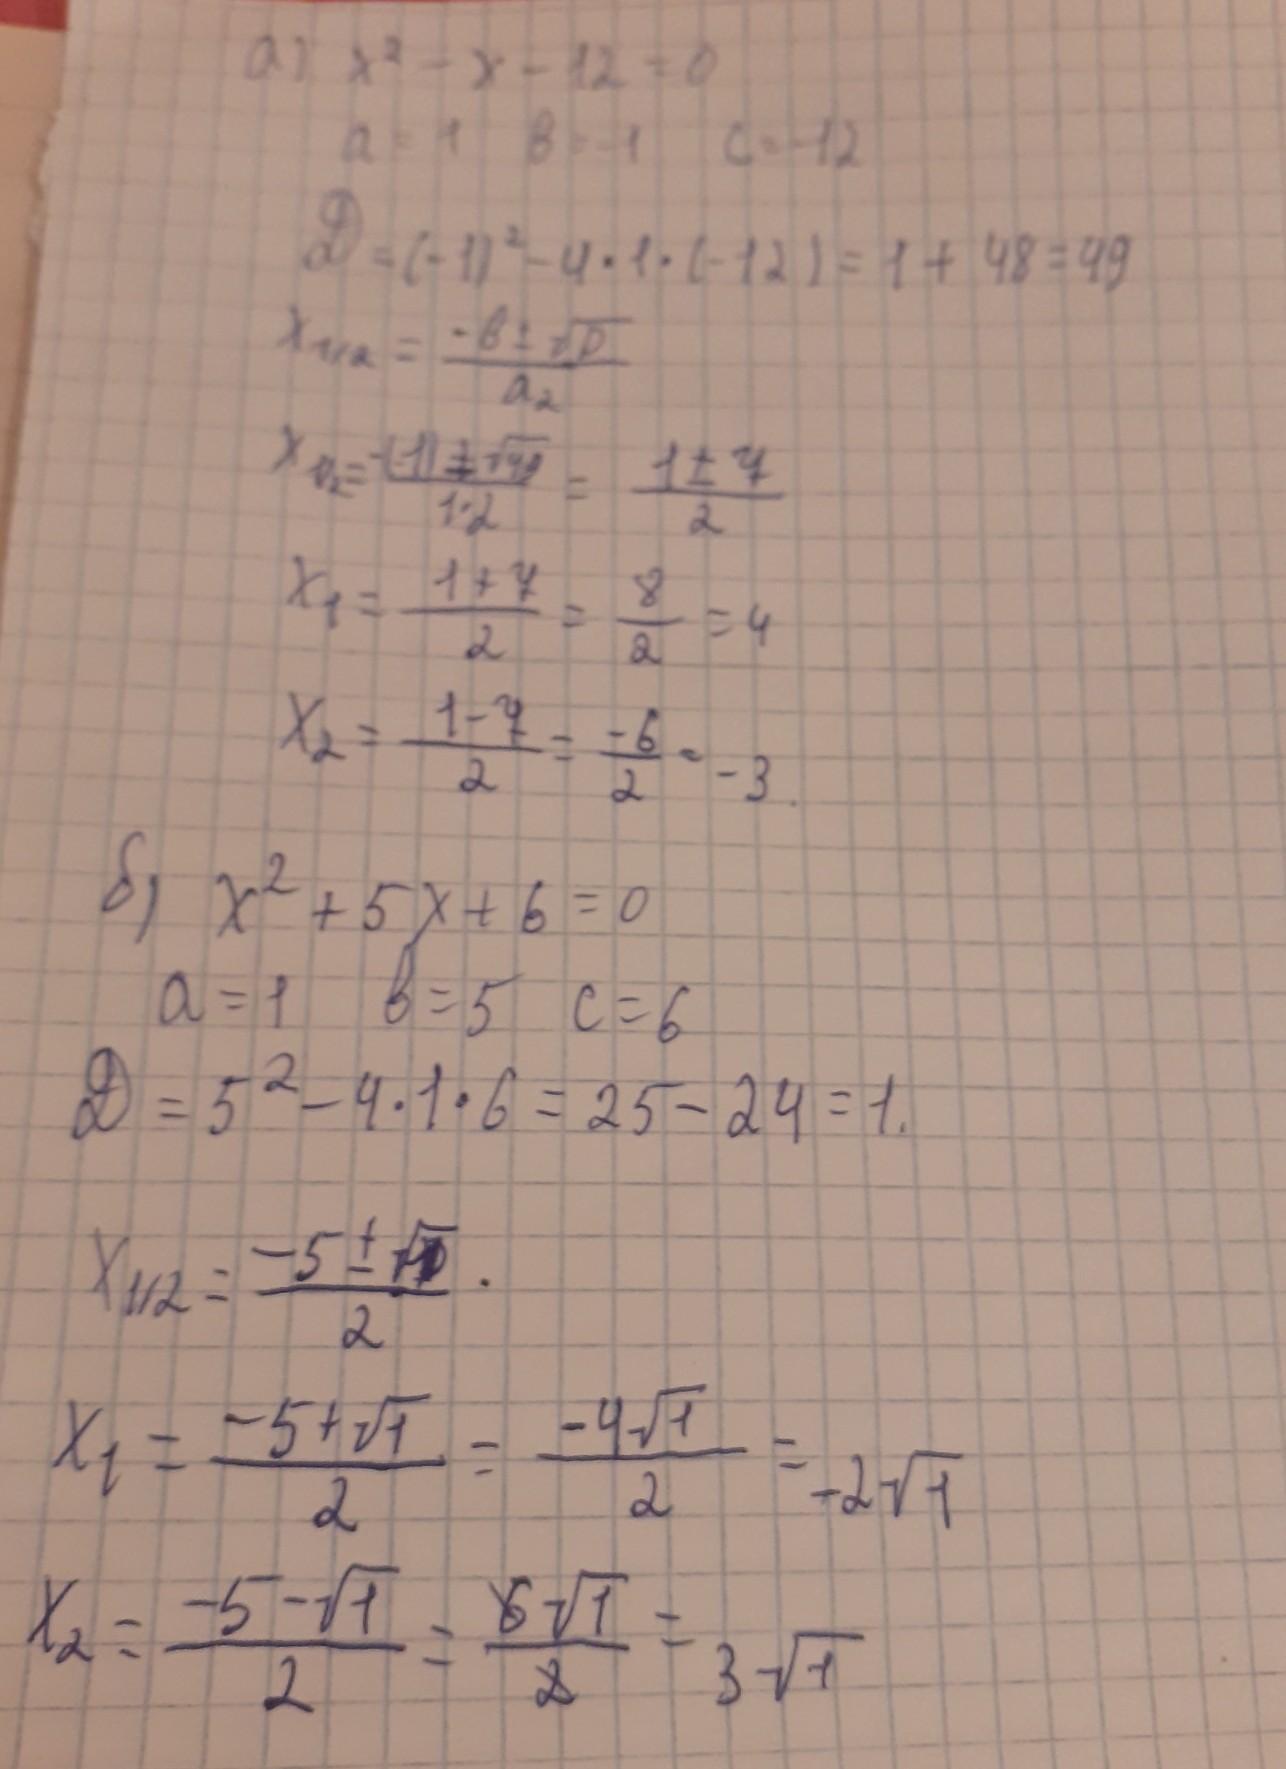 а) x² - x - 12 = 0
a = 1 b = -1 c = -12
D = (-1)² - 4 · 1 · (-12) = 1 + 48 = 49
x₁,₂ = (-b ± √D) / a₂
x₁,₂ = (-(-1) ± √49) / (1·2) = (1 ± 7) / 2
x₁ = (1 + 7) / 2 = 8 / 2 = 4
x₂ = (1 - 7) / 2 = -6 / 2 = -3.
б) x² + 5x + 6 = 0
a = 1 b = 5 c = 6
D = 5² - 4 · 1 · 6 = 25 - 24 = 1.
x₁,₂ = (-5 ± √1) / 2 .
x₁ = (-5 + √1) / 2 = (-4√1) / 2 = -2√1
x₂ = (-5 - √1) / 2 = (6√1) / 2 = 3√1